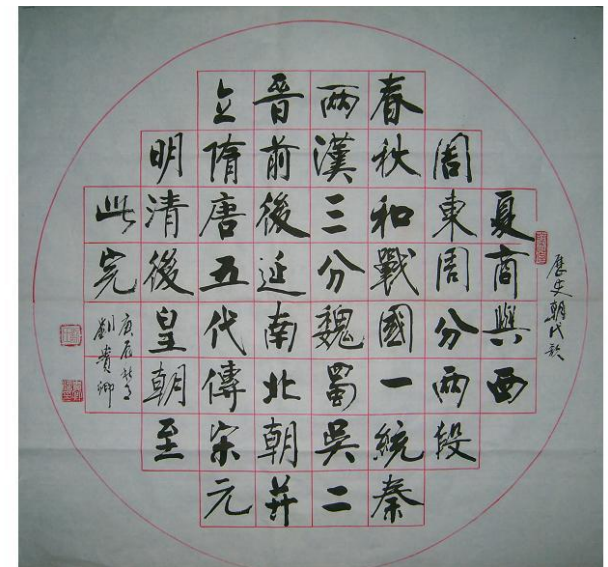 歷史朝代歌
夏商與西
周東周分兩段
春秋和戰國一統秦
兩漢三分魏蜀吳二
晉前後延南北朝並
立隋唐五代傳宋元
明清後皇朝至
此完
庚辰
劉貴卿